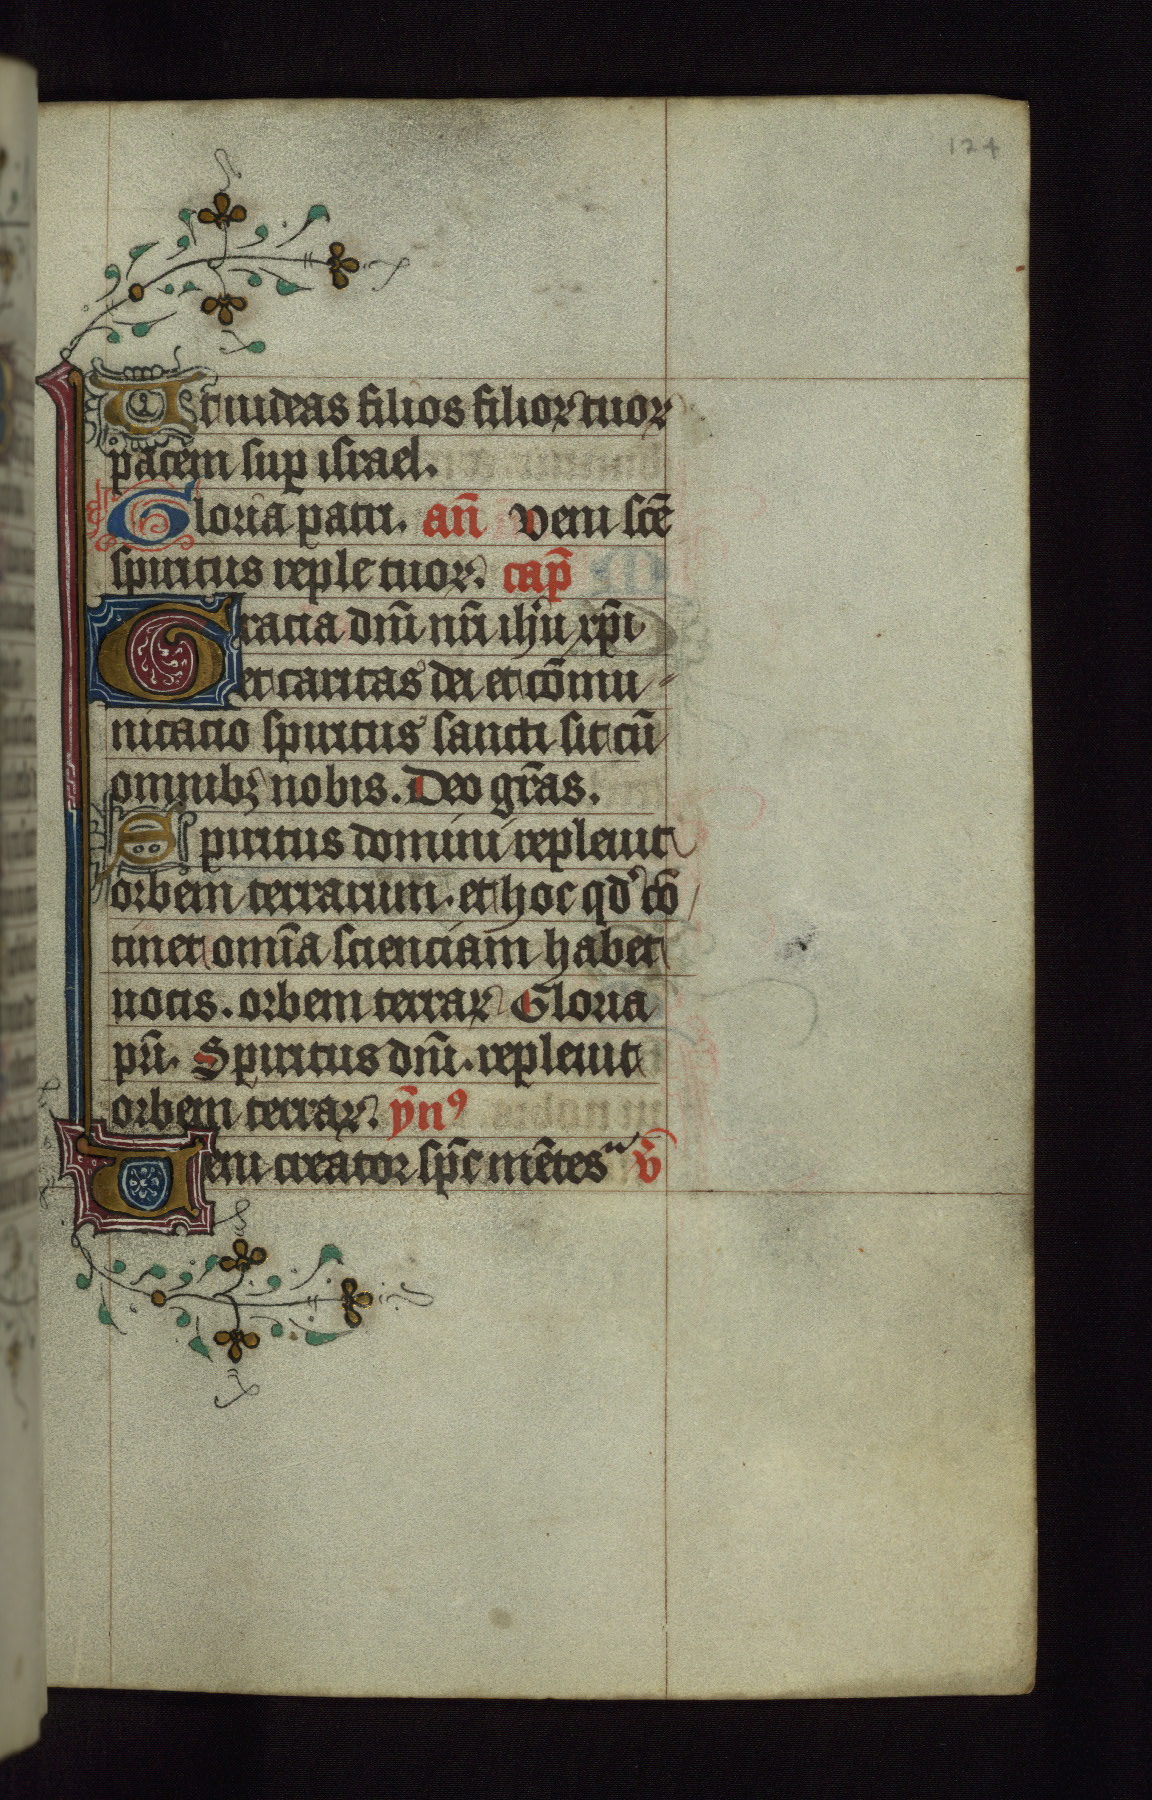 124
Et uideas filios filiorꝝ tuorꝝ
pacem sup israel.
Gloria patri. an̄ veni sc̄e
spiritus reple tuorꝝ. cap̄
Gracia dn̄i nr̄i ih'u xp̄i
et caritas dei et cōmu
nicacio spiritus sancti sit cū
omnibꝫ nobis. Deo gr̄as.
Spiritus domini repleuit
orbem terrarum. et hoc qd' cō
tinet om̄ia scienciam habet
uocis. orbem terrarꝝ Gloria
pr̄i. Spiritus dn̄i. repleuit
orbem terrarꝝ. ȳnꝰ
Ueni creator sp̄c mētes v̄